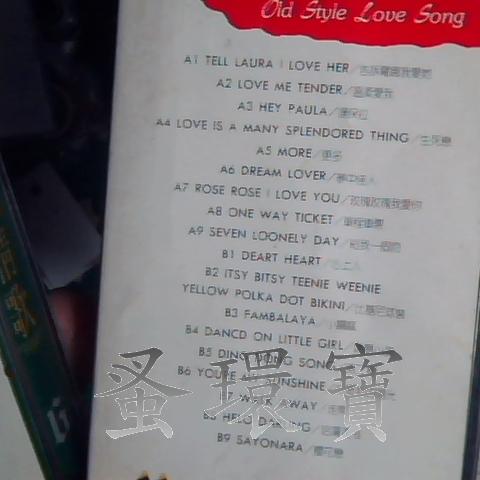 Old Style Love Song
A1 TELL LAURA I LOVE HER/告訴羅拉我愛她
A2 LOVE ME TENDER/溫柔愛我
A3 HEY PAULA/
A4 LOVE IS A MANY SPLENDORED THING/生死戀
A5 MORE/
A6 DREAM LOVER/夢中情人
A7 ROSE ROSE I LOVE YOU/玫瑰玫瑰我愛你
A8 ONE WAY TICKET/單程車票
A9 SEVEN LOONELY DAY/
B1 DEART HEART/心上人
B2 ITSY BITSY TEENIE WEENIE
YELLOW POLKA DOT BIKINI/比基尼泳裝
B3 FAMBALAYA/
B4 DANCD ON LITTLE GIRL/
B5 DING DONG SONG
B6 YOU'RE MY SUNSHINE
B7 WALK AWAY/
B8 HELO DARLING/
B9 SAYONARA/櫻花戀
蚤環寶